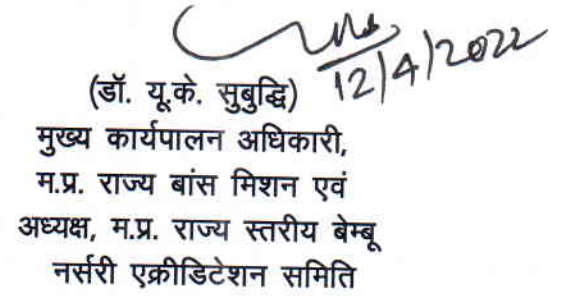 12/4/2022
(डॉ. यू.के. सुबुद्धि)
मुख्य कार्यपालन अधिकारी,
म.प्र. राज्य बांस मिशन एवं
अध्यक्ष, म.प्र. राज्य स्तरीय बेम्बू
नर्सरी एक्रीडिटेशन समिति